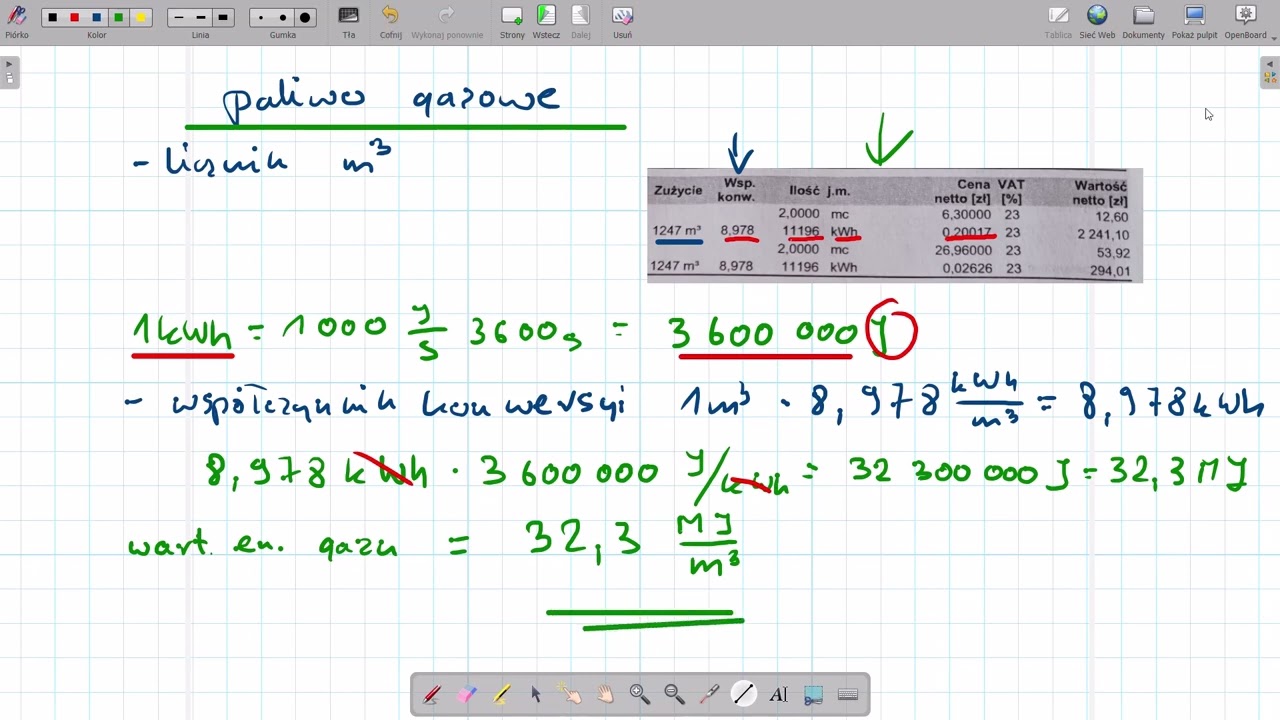 Piórko Kolor Linia Gumka Tła Cofnij Wykonaj ponownie Strony Wstecz Dalej Usuń Tablica Sieć Web Dokumenty Pokaż pulpit OpenBoard
paliwo gazowe
- licznik m³
Zużycie Wsp. konw. Ilość j.m. Cena netto [zł] VAT [%] Wartość netto [zł]
2,0000 mc 6,30000 23 12,60
1247 m³ 8,978 11196 kWh 0,20017 23 2 241,10
2,0000 mc 26,96000 23 53,92
1247 m³ 8,978 11196 kWh 0,02626 23 294,01
1kWh = 1000 J/s 3600s = 3 600 000 J
- współczynnik konwersji 1m³ · 8,978 kWh/m³ = 8,978kWh
8,978 kWh · 3 600 000 J/kWh = 32 300 000 J = 32,3 MJ
wart. en. gazu = 32,3 MJ/m³
AI